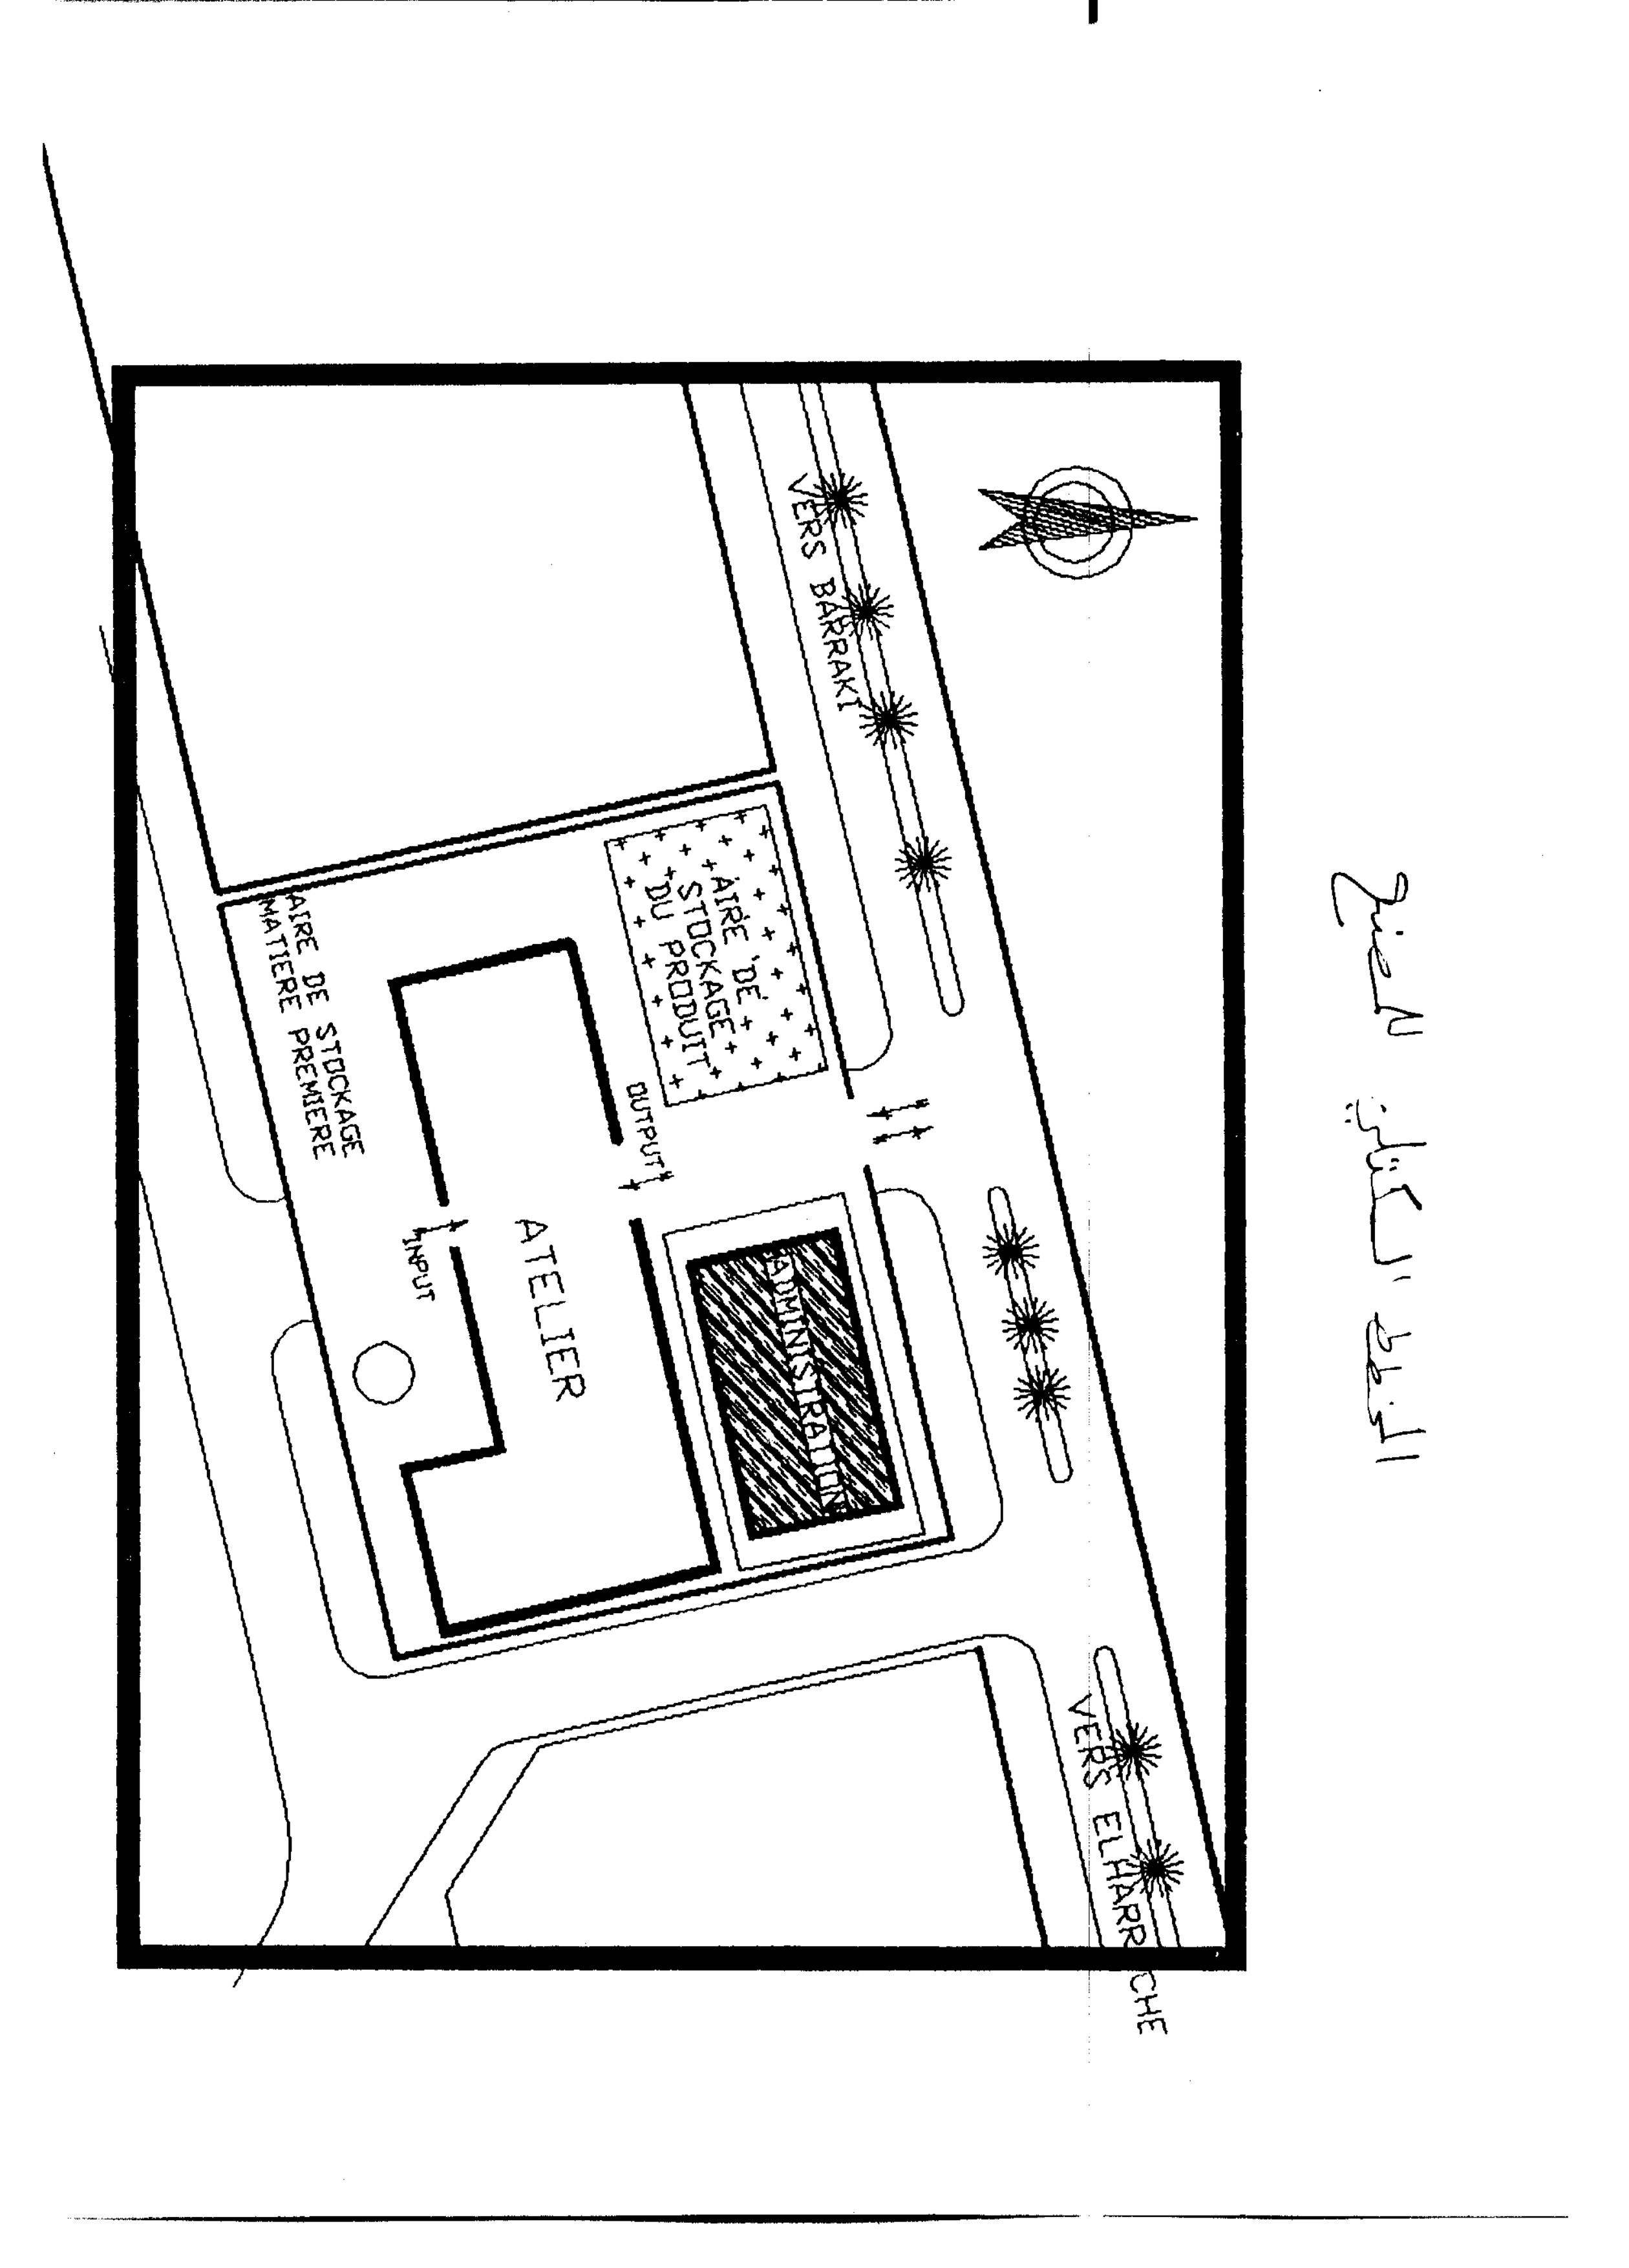 المخطط الكتلي للمنتج
VERS BARRAKI
VERS ELHARRACHE
AIRE DE
STOCKAGE
DU PRODUIT
ADMINISTRATION
OUTPUT
ATELIER
INPUT
AIRE DE STOCKAGE
MATIERE PREMIERE